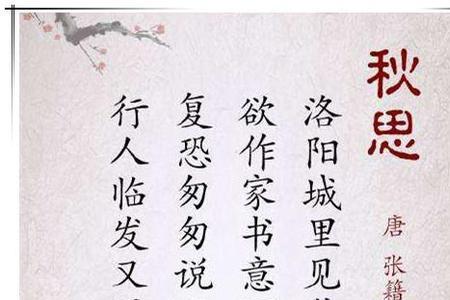 秋思
唐 张籍
洛阳城里见
欲作家书意
复恐匆匆说
行人临发又